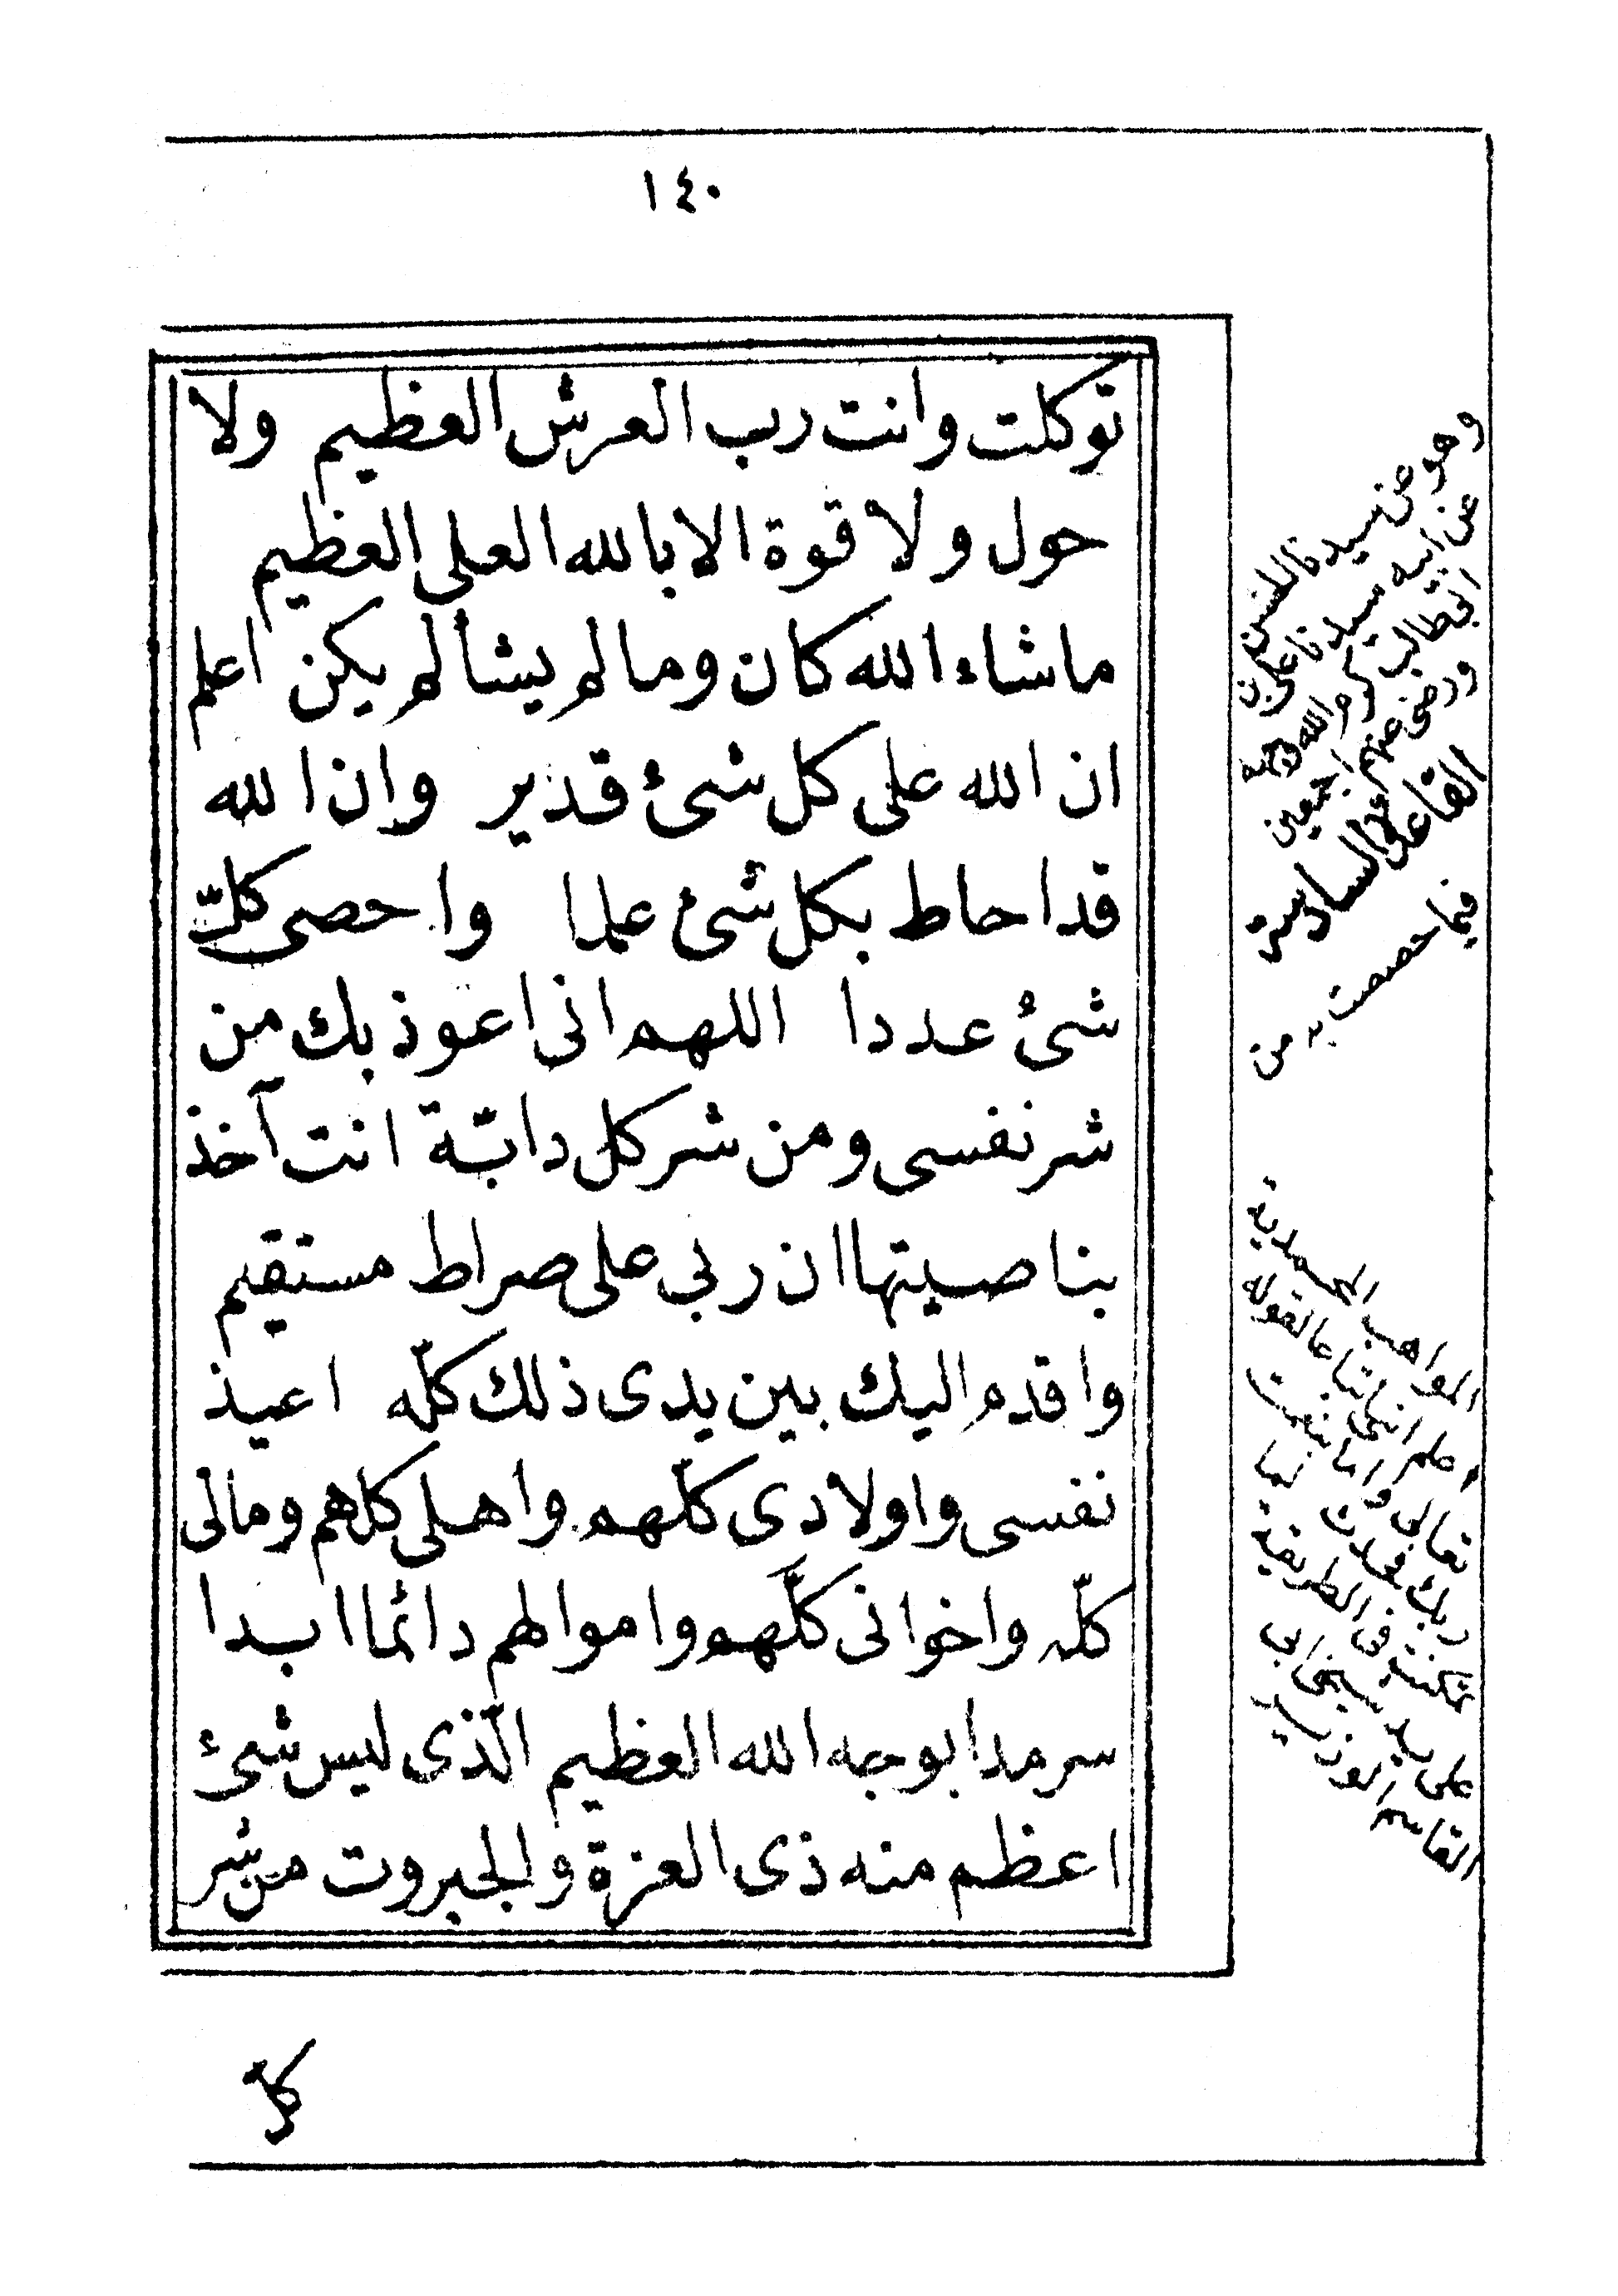 ١٤٠
توكلت وانت رب العرش العظيم ولا
حول ولا قوة الا بالله العلى العظيم
ماشاء الله كان وما لم يشأ لم يكن اعلم
ان الله على كل شئ قدير وان الله
قد احاط بكل شئ علما واحصى كلّ
شئ عددا اللهم انى اعوذ بك من
شر نفسى ومن شر كل دابّة انت آخذ
بناصيتها ان ربى على صراط مستقيم
واقدم اليك بين يدى ذلك كلّه اعيذ
نفسى واولادى كلّهم واهلى كلهم ومالى
كلّه واخوانى كلّهم واموالهم دائما ابدا
سرمدا بوجه الله العظيم الّذى ليس شئ
اعظم منه ذى العزة والجبروت من شر
كل
وهو عن سيدنا الحسن
عن ابيه سيدنا على بن
ابى طالب كرم الله وجهه
ورضى عنهم اجمعين
القاعدة السادسة
فيما خصصت به من
المواهب المحمدية
اعلم انى اتباعا لقوله
تعالى واما بنعمة
ربك فحدث لما
تمكنت فى الطريقة
على يد شيخى ابى
القاسم الوزير